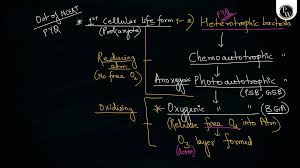 Out of NCERT
PYQ
* 1st Cellular life form → Heterotrophic bacteria
PYQ
(Prokaryote)
Reducing
atm
(No free O2)
Chemoautotrophic "
Anoxygenic Photoautotrophic "
(PSB, GSB)
Oxidising
* Oxygenic " " (BGA)
(Release free O2 into Atm)
O3 layer formed
(Ozone)